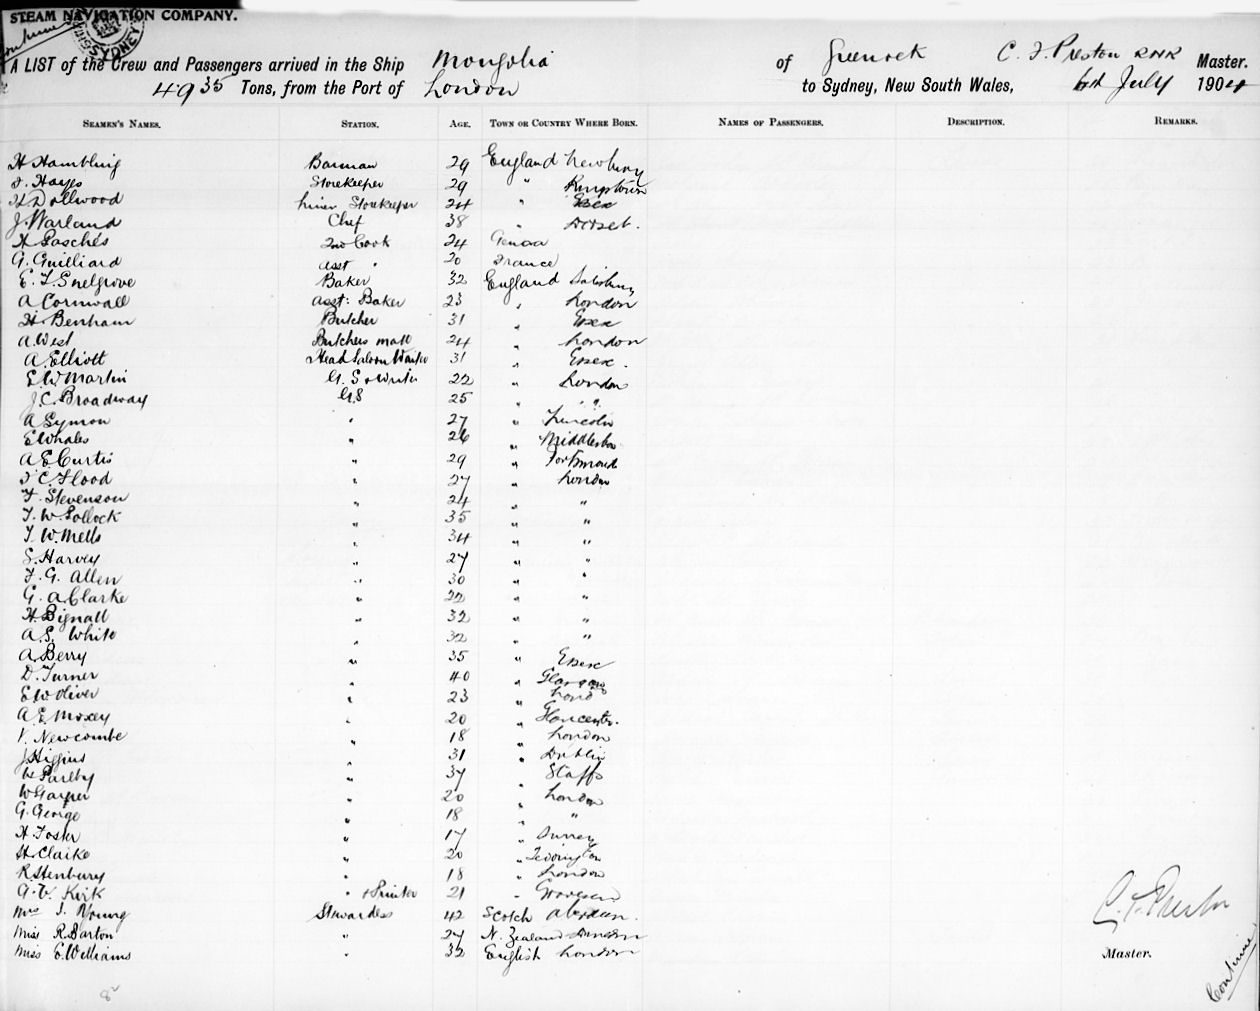 STEAM NAVIGATION COMPANY.
Continued
SYDNEY
A LIST of the Crew and Passengers arrived in the Ship Mongolia of Greenock C. F. Preston RNR Master.
4935 Tons, from the Port of London to Sydney, New South Wales, 6th July 1904
SEAMEN'S NAMES. STATION. AGE. TOWN OR COUNTRY WHERE BORN. NAMES OF PASSENGERS. DESCRIPTION. REMARKS.
H Hambling Barman 29 England Newbury
J. Hayes Storekeeper 29 "
H Dollwood Linen Storekeeper 24 " Essex
J. Warland Chef 38 " Dorset.
H Pasches 2nd Cook 24 Genoa
G. Guilliard asst " 20 France
E. T. Snelgrove Baker 32 England Salisbury
A Cornwall asst: Baker 23 " London
H. Benham Butcher 31 " Essex
A. West Butchers mate 24 " London
A. Elliott Head Saloon Waiter 31 " Essex.
E. W Martin G. S & Writer 22 " London
J. C. Broadway G. S 25 " "
A Symon " 27 " Lincoln
E Whales " 26 " Middlesbro
A E Curtis " 29 " Portsmouth
F C. Flood " 27 " London
F. Stevenson " 24 " "
T. W. Pollock " 35 " "
T. W. Mells " 34 " "
S. Harvey " 27 " "
F. G. Allen " 30 " "
G. A Clarke " 22 " "
H. Bignall " 32 " "
A. S. White " 32 " "
A. Berry " 35 " Essex
D. Turner " 40 " Glasgow
E W Oliver " 23 " Lond
A. E. Moxey " 20 " Gloucester.
V. Newcombe " 18 " London
J Higgins " 31 " Dublin
W Parlby " 37 " Staffs
W Harper " 20 " London
G. George " 18 " "
H. Foster " 17 " Surrey
H. Clarke " 20 " Teddington
R Stenbury " 18 " London
G. V. Kirk " & Printer 21 " Gravesend
Mrs J. Young Stewardess 42 Scotch Aberdeen.
Miss R. Barton " 27 N. Zealand Dunedin
Miss E. Williams " 32 English London
C. F. Preston
Master.
Continued
82